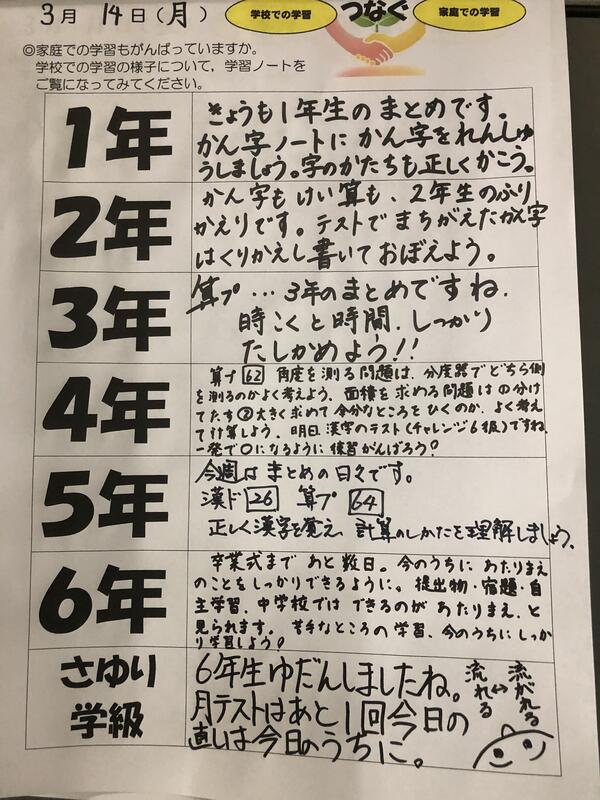 3月 14日(月)
学校での学習
つなぐ
家庭での学習
◎家庭での学習もがんばっていますか。
学校での学習の様子について，学習ノートを
ご覧になってみてください。
1年
きょうも1年生のまとめです。
かん字ノートにかん字をれんしゅ
うしましょう。字のかたちも正しくかこう。
2年
かん字もけい算も、2年生のふり
かえりです。テストでまちがえたかん字
はくりかえし書いておぼえよう。
3年
算プ…3年のまとめですね.
時こくと時間.しっかり
たしかめよう!!
4年
算プ 62 角度を測る問題は、分度器でどちら側
を測るのかよく考えよう。面積を求める問題は①分け
てたす ②大きく求めて余分なところをひくのか、よく考え
て計算しよう。明日漢字のテスト(チャレンジ6級)ですね.
一発で○になるように練習がんばろう?
5年
今週はまとめの日々です。
漢ド 26 算プ 64
正しく漢字を覚え、計算のしかたを理解しましょう。
6年
卒業式まであと数日。今のうちにあたりまえ
のことをしっかりできるように。提出物・宿題・自
主学習、中学校ではできるのがあたりまえ、と
見られます。苦手なところの学習、今のうちにしっか
り学習しよう!
さゆり
学級
6年生ゆだんしましたね。
月テストはあと1回今日の
直しは今日のうちに。
流がれる
↔
流れる